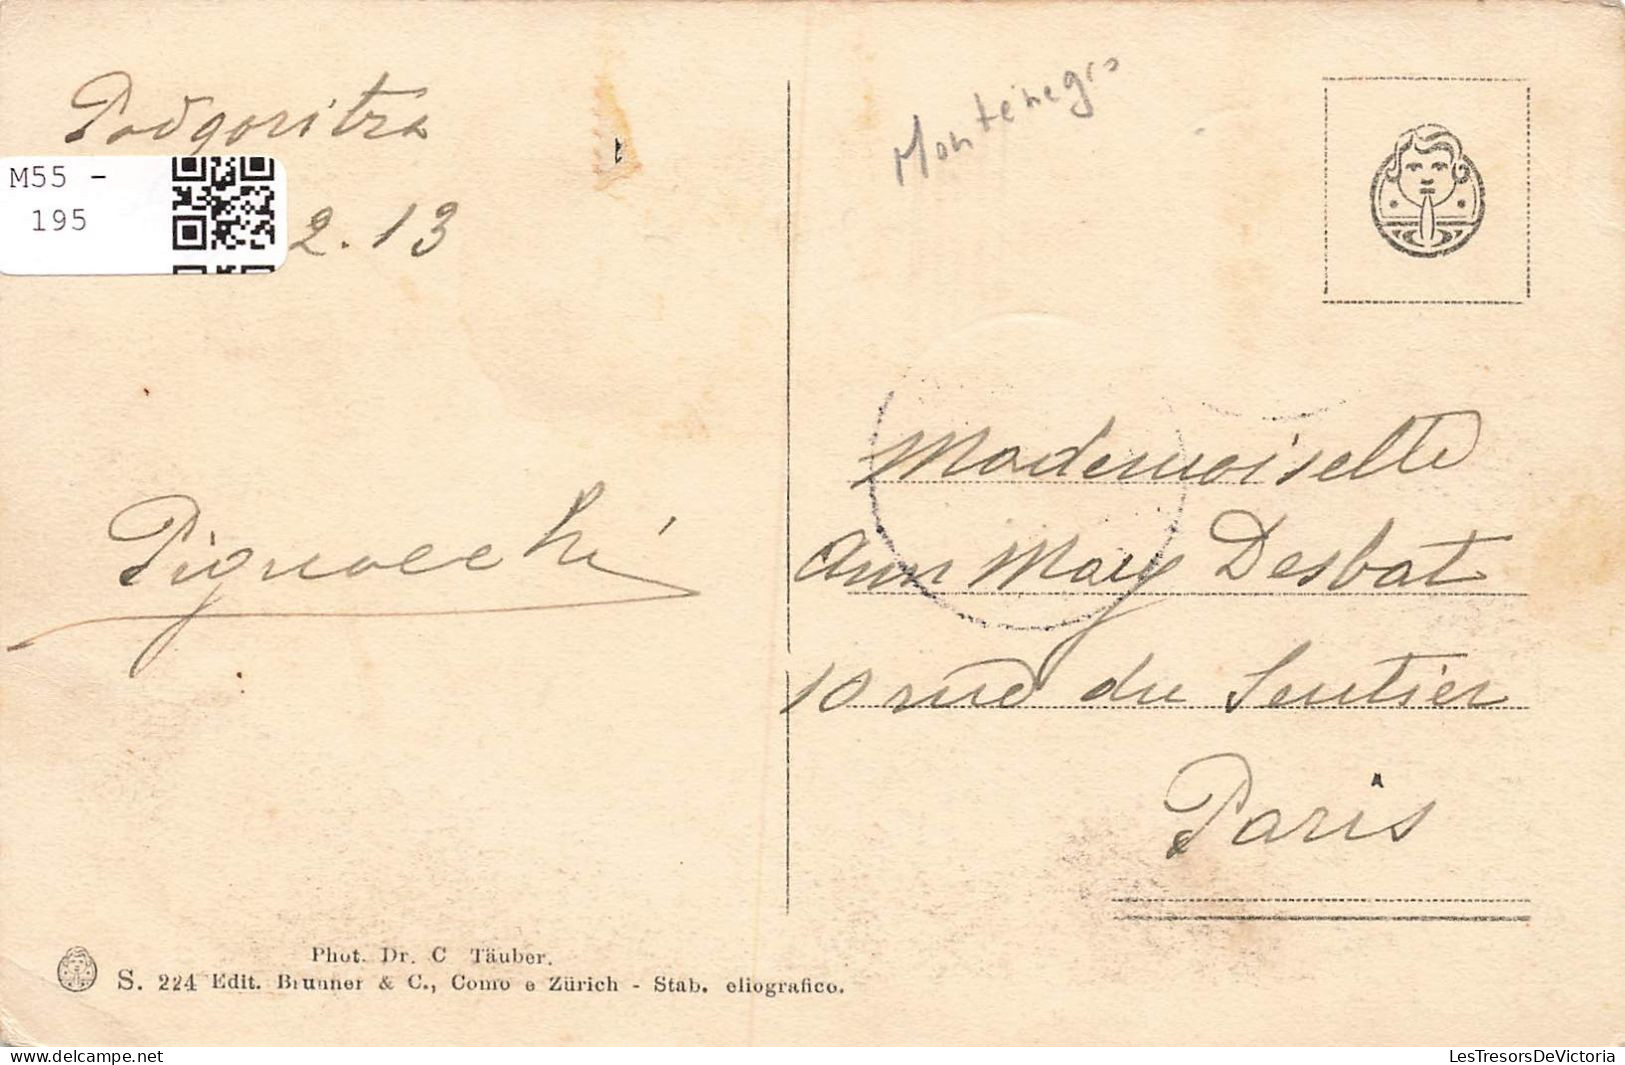 Podgoritza
M55 -
195
2.13
Montenegro
Pignocchi
Mademoiselle
Ann Mary Desbat
10 rue du Sentier
Paris
Phot. Dr. C Täuber.
S. 224 Edit. Brunner & C., Como e Zürich - Stab. eliografico.
LesTresorsDeVictoria